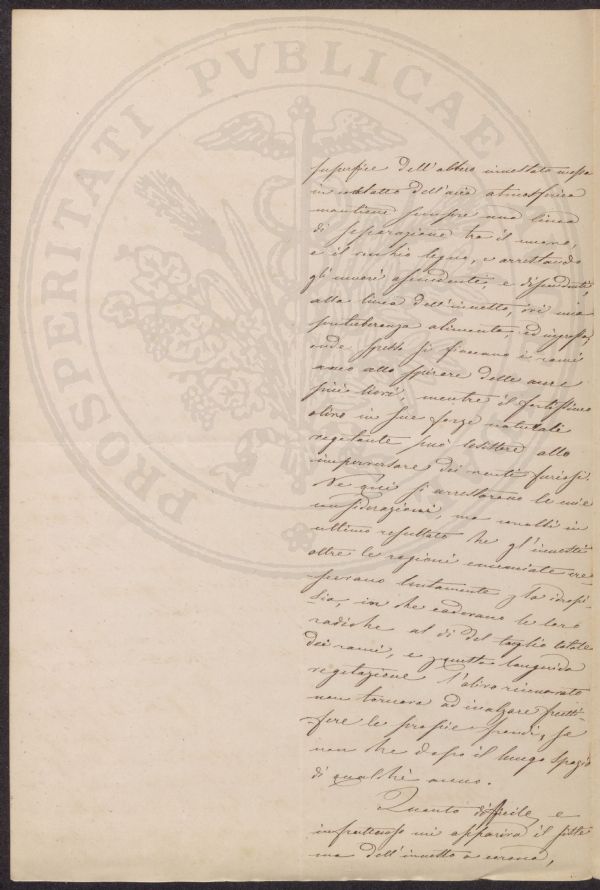 PROSPERITATI PVBLICAE
superfice dell'albero innestato messa
in contatto dell'aria atmosferica
mantiene sempre una linea
di separazione tra il nuovo,
e il vecchio legno, e arrestando
gli umori ascendenti, e discendenti,
alla linea dell'innesto, ivi una
protuberanza alimenta, ed ingrossa,
onde spesso si fiaccano i rami
anco allo spirare delle aure
più lievi, mentre il fortissimo
olivo in sue forze naturali
vegetante può resistere allo
imperversare dei venti furiosi.
Ne qui si arrestarono le mie
considerazioni, ma conobbi in
ultimo resultato che gl'innesti
oltre le ragioni enunciate
peravano lentamente p la idropi-
sia, in che cadevano le loro
radiche al di del taglio totale
dei rami, e p questa languida
vegetazione l'olivo rinnovato
non tornava ad inalzare frutti-
fere le proprie frondi, se
non che dopo il lungo spazio
di qualche anno.
Quanto difficile, e
infruttuoso mi appariva il siste
ma dell'innesto a corona,